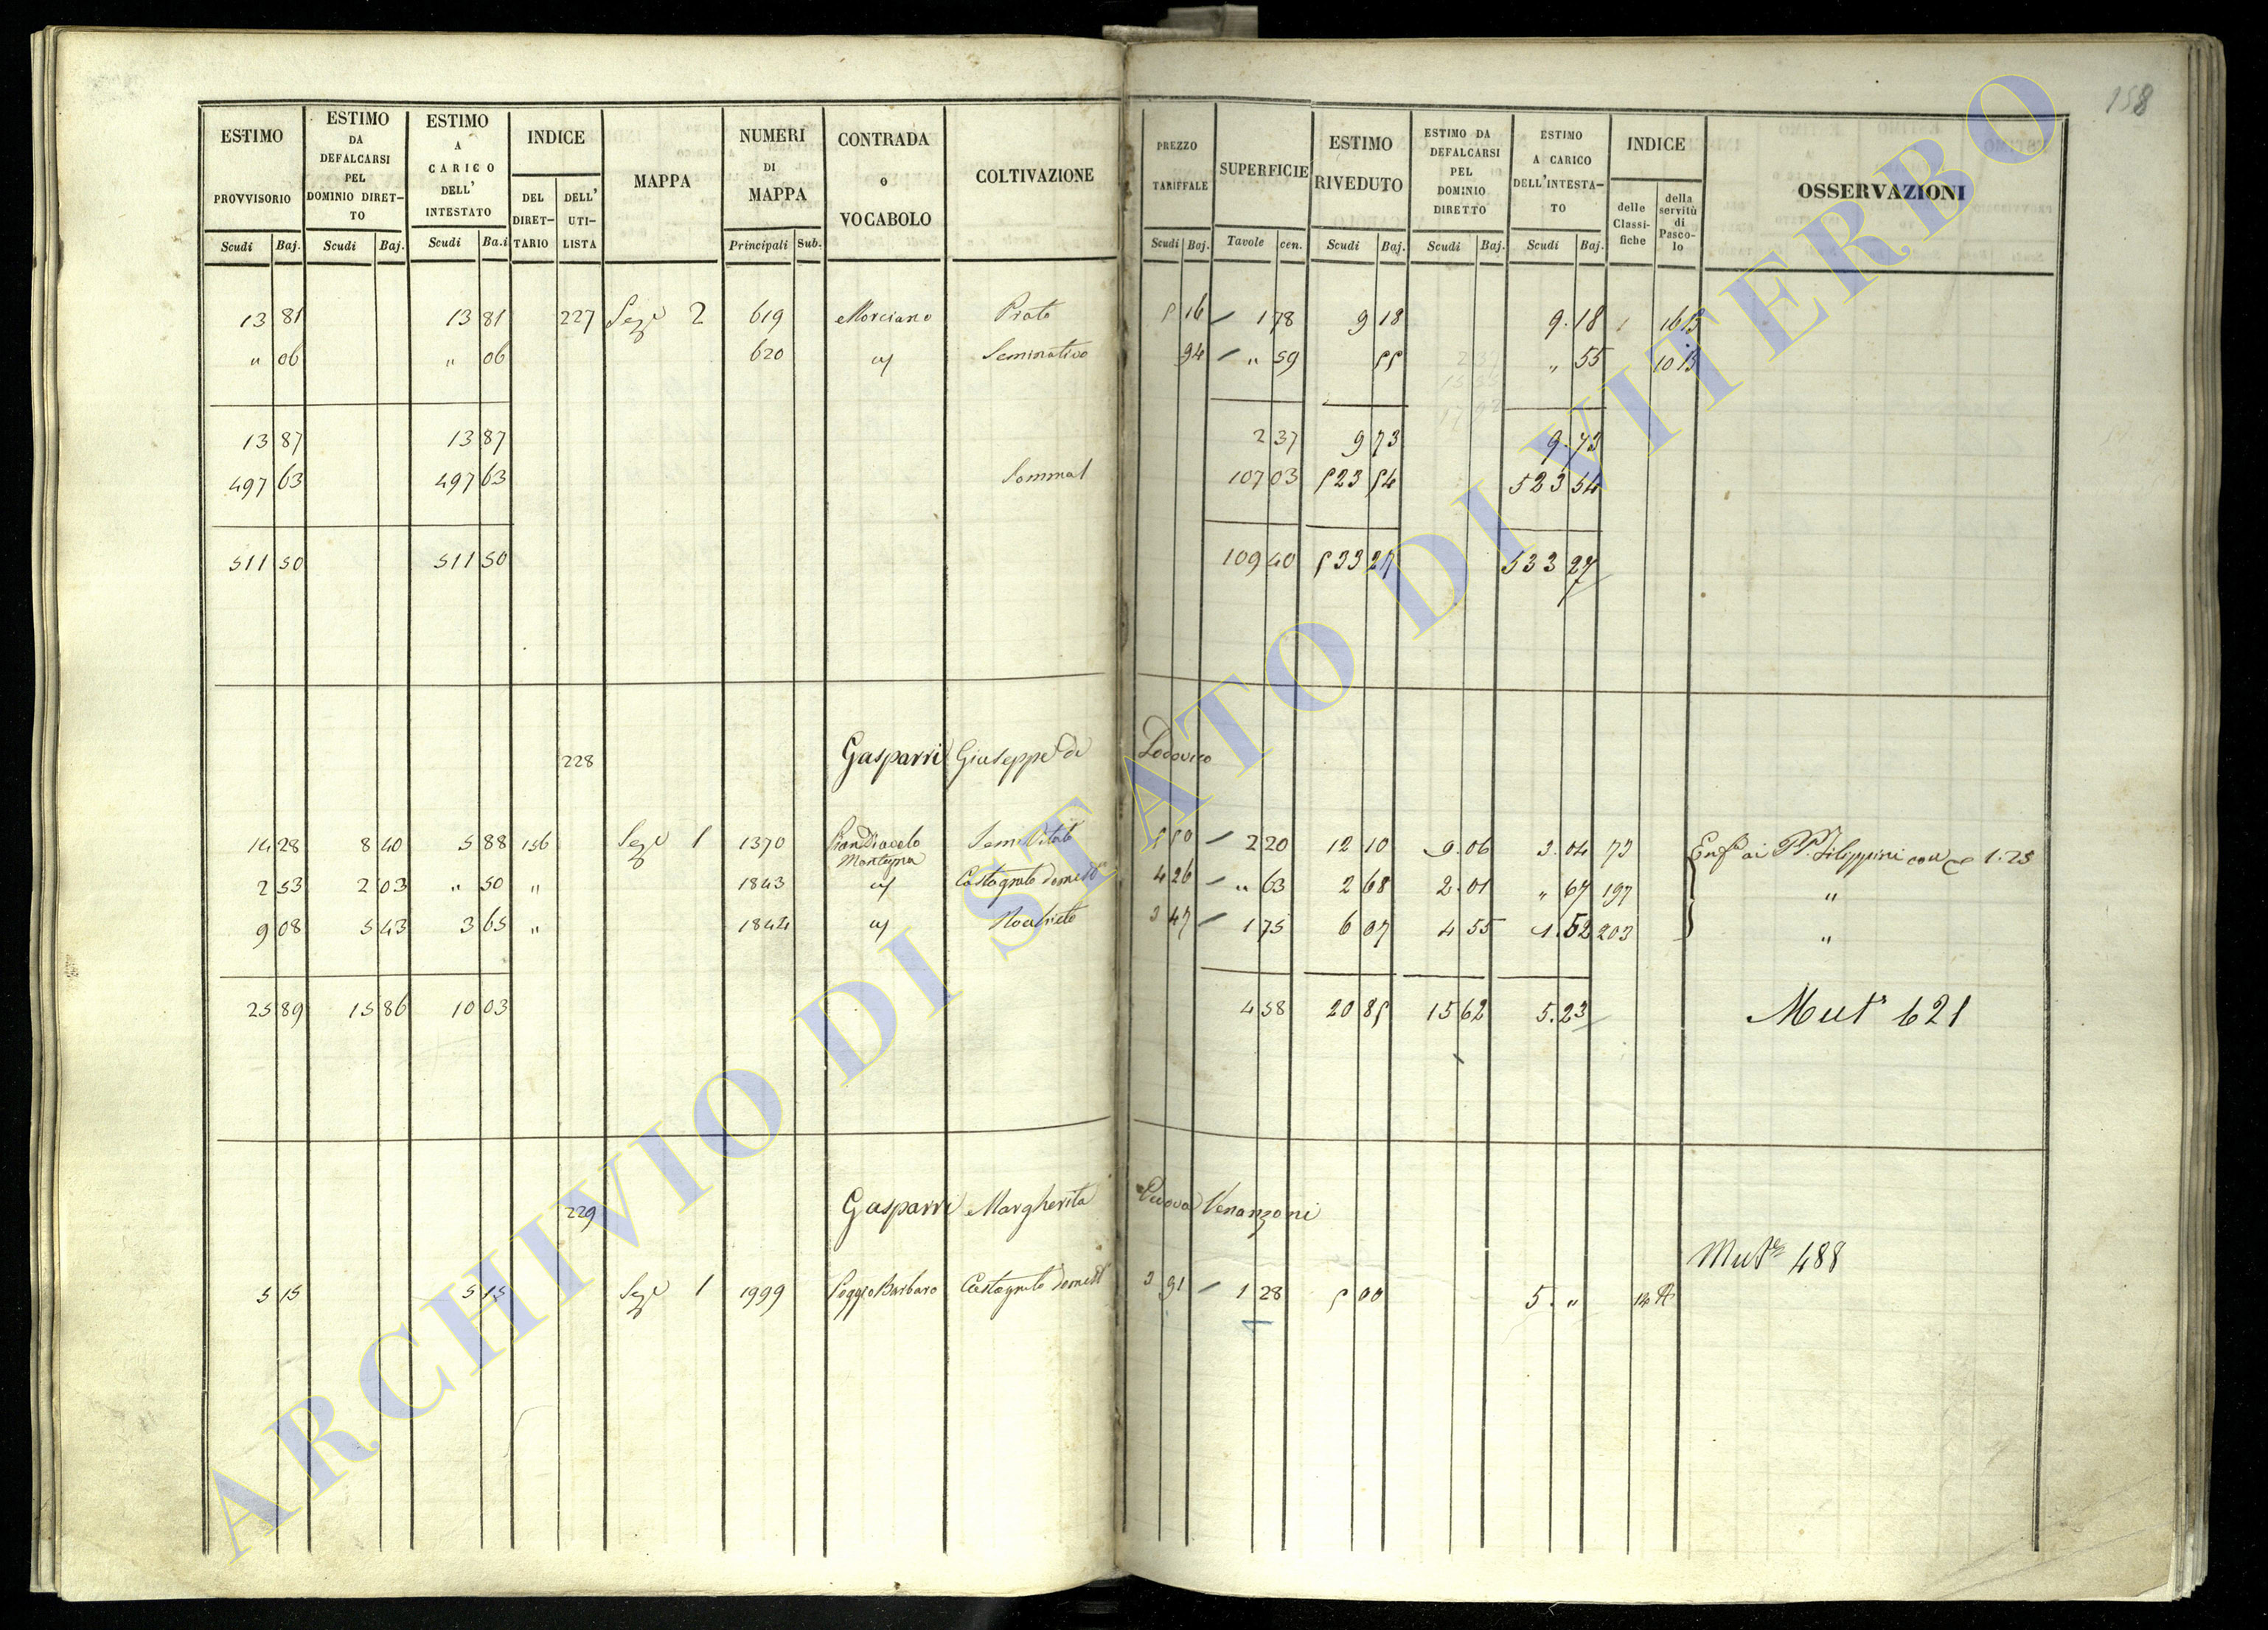 158
ESTIMO PROVVISORIO ESTIMO DA DEFALCARSI PEL DOMINIO DIRETTO ESTIMO A CARICO DELL' INTESTATO INDICE MAPPA NUMERI DI MAPPA CONTRADA o VOCABOLO COLTIVAZIONE PREZZO TARIFFALE SUPERFICIE ESTIMO RIVEDUTO ESTIMO DA DEFALCARSI PEL DOMINIO DIRETTO ESTIMO A CARICO DELL'INTESTATO INDICE OSSERVAZIONI
DEL DIRETTARIO DELL' UTILISTA delle Classifiche della servitù di Pascolo
Scudi Baj. Scudi Baj. Scudi Ba.i Principali Sub. Scudi Baj. Tavole cen. Scudi Baj. Scudi Baj. Scudi Baj.
13 81 13 81 227 Sez.e 2 619 Morciano Prato 5 16 1 78 9 18 9.18 1 16 B
" 06 " 06 620 Seminativo 94 " 59 55 " 55 10 B
13 87 13 87 2 37 9 73 9.73
497 63 497 63 107 03 523 54 523 54
511 50 511 50 109 40 533 27 533 27
228 Gasparri Giuseppe di Lodovico
14 28 8 40 5 88 156 Sez.e 1 1370 5 50 2 20 12 10 9.06 3.04 73 Enf.a ai PP. Filippini con 1.25
2 53 2 03 " 50 " 1843 Castagneto domest.o 4 26 " 63 2 68 2.01 " 67 197 "
9 08 5 43 3 65 " 1844 3 47 1 75 6 07 4 55 1.52 203 "
25 89 15 86 10 03 4 58 20 85 15 62 5.23 Mut.e 621
229 Gasparri Margherita Vedova Venanzoni
Mut.e 488
5 15 5 15 Sez.e 1 1999 Poggio Barbaro Castagneto domest.o 3 91 1 28 5 00 5. " 14 A
ARCHIVIO DI STATO DI VITERBO